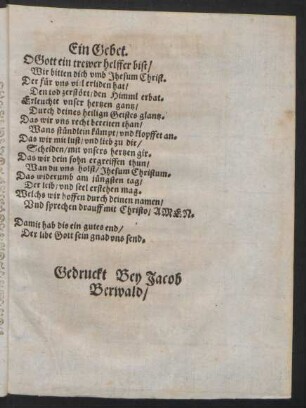 Ein Gebet.
O Gott ein trewer helffer bist/
Wir bitten dich vmb Jhesum Christ.
Der für vns viel erliden hat/
Den tod zerstört/ den Himml erbat.
Erleuchte vnser hertzen gantz/
Durch deines heilign Geistes glantz.
Das wir vns recht bereiten than/
Wans stündlein kümpt/ vnd klopffet an.
Das wir mit lust/ vnd lieb zu dir/
Scheiden/ mit vnsers hertzen gir.
Das wir dein sohn ergreiffen thun/
Wan du vns holst/ Jhesum Christum.
Das widerumb am jüngsten tag/
Der leib/ vnd seel erstehen mag.
Welchs wir hoffen durch deinen namen/
Vnd sprechen drauff mit Christo/ AMEN.
Damit hab dis ein gutes end/
Der libe Gott sein gnad vns send.
Gedruckt Bey Jacob
Berwald/